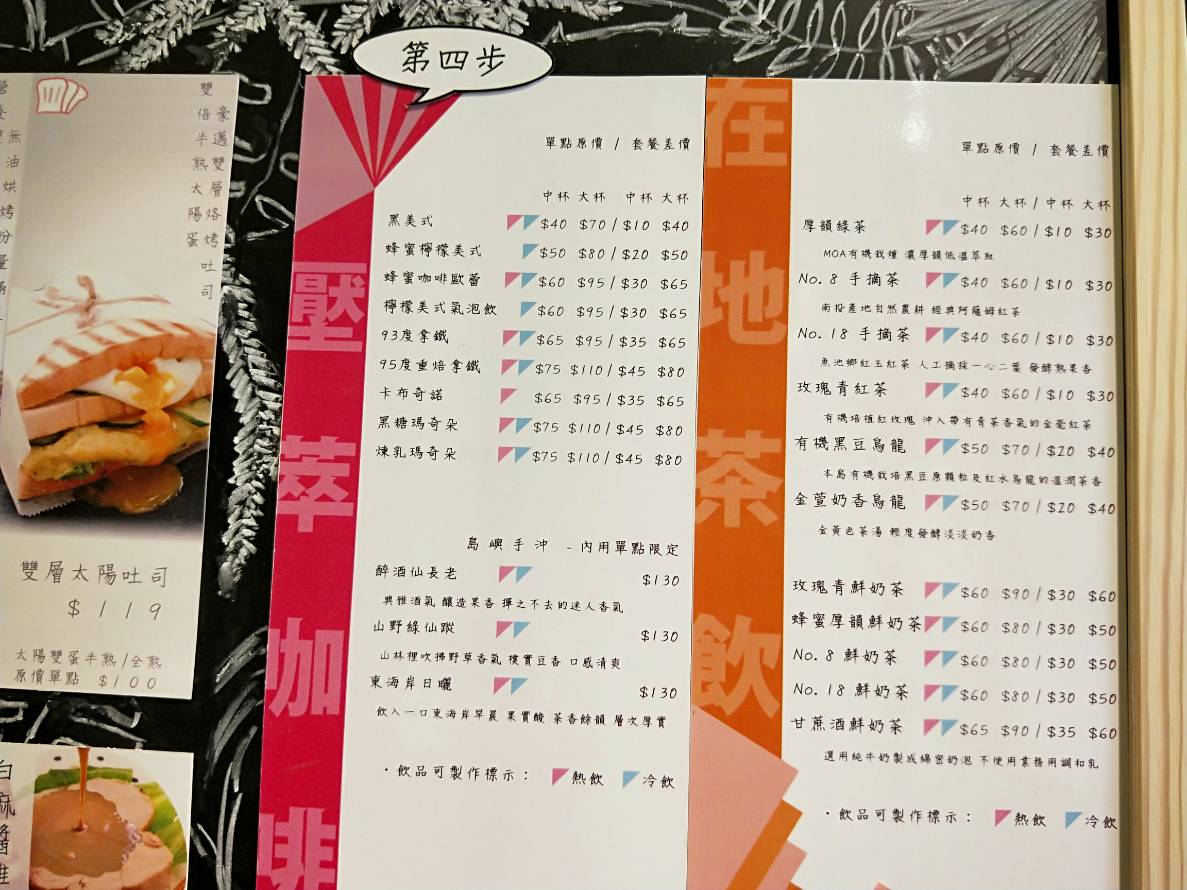 第四步
雙倍半熟太陽蛋
豪邁雙層烙烤吐司
無油烘烤
雙層太陽吐司
$119
太陽雙蛋半熟/全熟
原價單點 $100
白麻醬
壓萃咖啡
單點原價 / 套餐差價
中杯 大杯 中杯 大杯
黑美式 $40 $70 / $10 $40
蜂蜜檸檬美式 $50 $80 / $20 $50
蜂蜜咖啡歐蕾 $60 $95 / $30 $65
檸檬美式氣泡飲 $60 $95 / $30 $65
93度拿鐵 $65 $95 / $35 $65
95度重焙拿鐵 $75 $110 / $45 $80
卡布奇諾 $65 $95 / $35 $65
黑糖瑪奇朵 $75 $110 / $45 $80
煉乳瑪奇朵 $75 $110 / $45 $80
島嶼手沖 - 內用單點限定
醉酒仙長老 $130
典雅酒氣 釀造果香 揮之不去的迷人香氣
山野綠仙蹤 $130
山林裡吹拂野草香氣 樸實豆香 口感清爽
東海岸日曬 $130
飲入一口東海岸早晨 果實酸 茶香餘韻 層次厚實
・飲品可製作標示： 熱飲 冷飲
在地茶飲
單點原價 / 套餐差價
中杯 大杯 / 中杯 大杯
厚韻綠茶 $40 $60 / $10 $30
MOA有機栽種 濃厚韻低溫萃取
No. 8 手摘茶 $40 $60 / $10 $30
南投產地自然農耕 經典阿薩姆紅茶
No. 18 手摘茶 $40 $60 / $10 $30
魚池鄉紅玉紅茶 人工摘採一心二葉 發酵熟果香
玫瑰青紅茶 $40 $60 / $10 $30
有機培植紅玫瑰 沖入帶有青茶香氣的金毫紅茶
有機黑豆烏龍 $50 $70 / $20 $40
本島有機栽培黑豆原顆粒及紅水烏龍的溫潤茶香
金萱奶香烏龍 $50 $70 / $20 $40
金黃色茶湯 輕度發酵淡淡奶香
玫瑰青鮮奶茶 $60 $90 / $30 $60
蜂蜜厚韻鮮奶茶 $60 $80 / $30 $50
No. 8 鮮奶茶 $60 $80 / $30 $50
No. 18 鮮奶茶 $60 $80 / $30 $50
甘蔗酒鮮奶茶 $65 $90 / $35 $60
選用純牛奶製成綿密奶泡 不使用業務用調和乳
・飲品可製作標示： 熱飲 冷飲